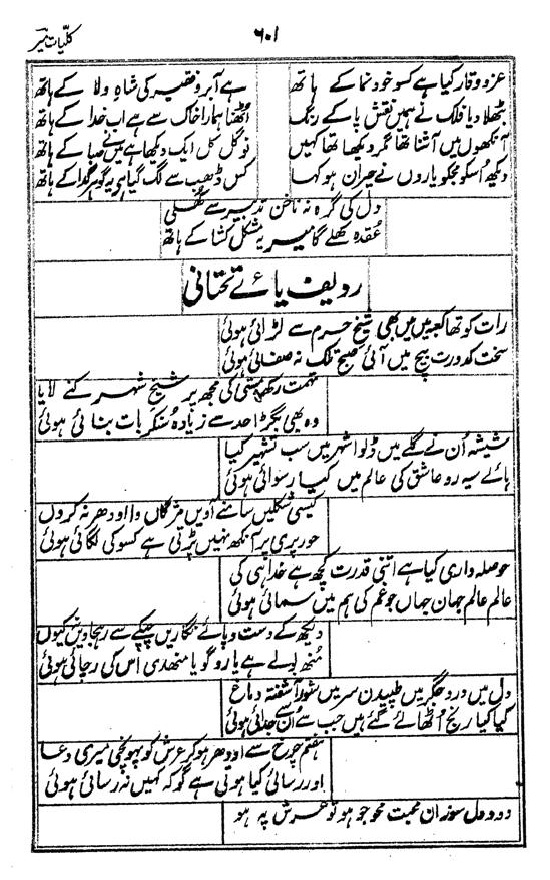 کلیات میر
۶۰۱
عز و وقار کیا ہے کسو خود نما کے ہاتھ
ہے آبرو فقیر کی شاہِ ولا کے ہاتھ
بٹھلا دیا فلک نے ہمیں نقش پا کے رنگ
اٹھنا ہمارا خاک سے ہے اب خدا کے ہاتھ
آنکھوں میں آشنا تھا مگر دیکھا تھا کہیں
نو گل کل ایک دیکھا ہے میں نے صبا کے ہاتھ
دیکھ اُسکو مجکو یاروں نے حیران ہو کہا
کس ڈھب سے لگ گیا ہی یہ گوہر گدا کے ہاتھ
دل کی گرہ نہ ناخن تدبیر سے کُھلی
عُقدہ کھلے گا میر یہ مشکل کشا کے ہاتھ
ردیف یائے تحتانی
رات کو تھا کعبے میں میں بھی شیخ حرم سے لڑائی ہوئی
سخت کدورت بیچ میں آئی صبح تلک نہ صفائی ہوئی
تہمت رکھ مستی کی مجھ پر شیخ شہر کنے لایا
وہ بھی بگڑا حد سے زیادہ سُنکر بات بنائی ہوئی
شیشہ اُن نے گلے میں ڈلوا شہر میں سب تشہیر کیا
ہائے سیہ رو عاشق کی عالم میں کیا رسوائی ہوئی
کیسی شکلیں سامنے آویں مژگاں وا اودھر نہ کروں
حور پری پر آنکھ نہیں پڑتی ہے کسو کی لگائی ہوئی
حوصلہ داری کیا ہے اتنی قدرت کچھ ہے خدا ہی کی
عالم عالم جہان جہاں جو غم کی ہم میں سمائی ہوئی
دیکھ کے دست و پائے نگاریں چپکے سے رہجاویں کیوں
مُنھ بولے ہے یارو گویا منھدی اس کی رچائی ہوئی
دل میں درد جگر میں طپیدن سر میں شور آشفتہ دماغ
کیا کیا رنج اُٹھائے گئے ہیں جب سے اُن سے جدائی ہوئی
ہفتم چرخ سے اودھر ہو کر عرش کو پہونچی میری دعا
اور رسائی کیا ہوتی ہے گو کہ کہیں نہ رسائی ہوئی
دود دل سوزان محبت محو جو ہو تو عرش پہ ہو